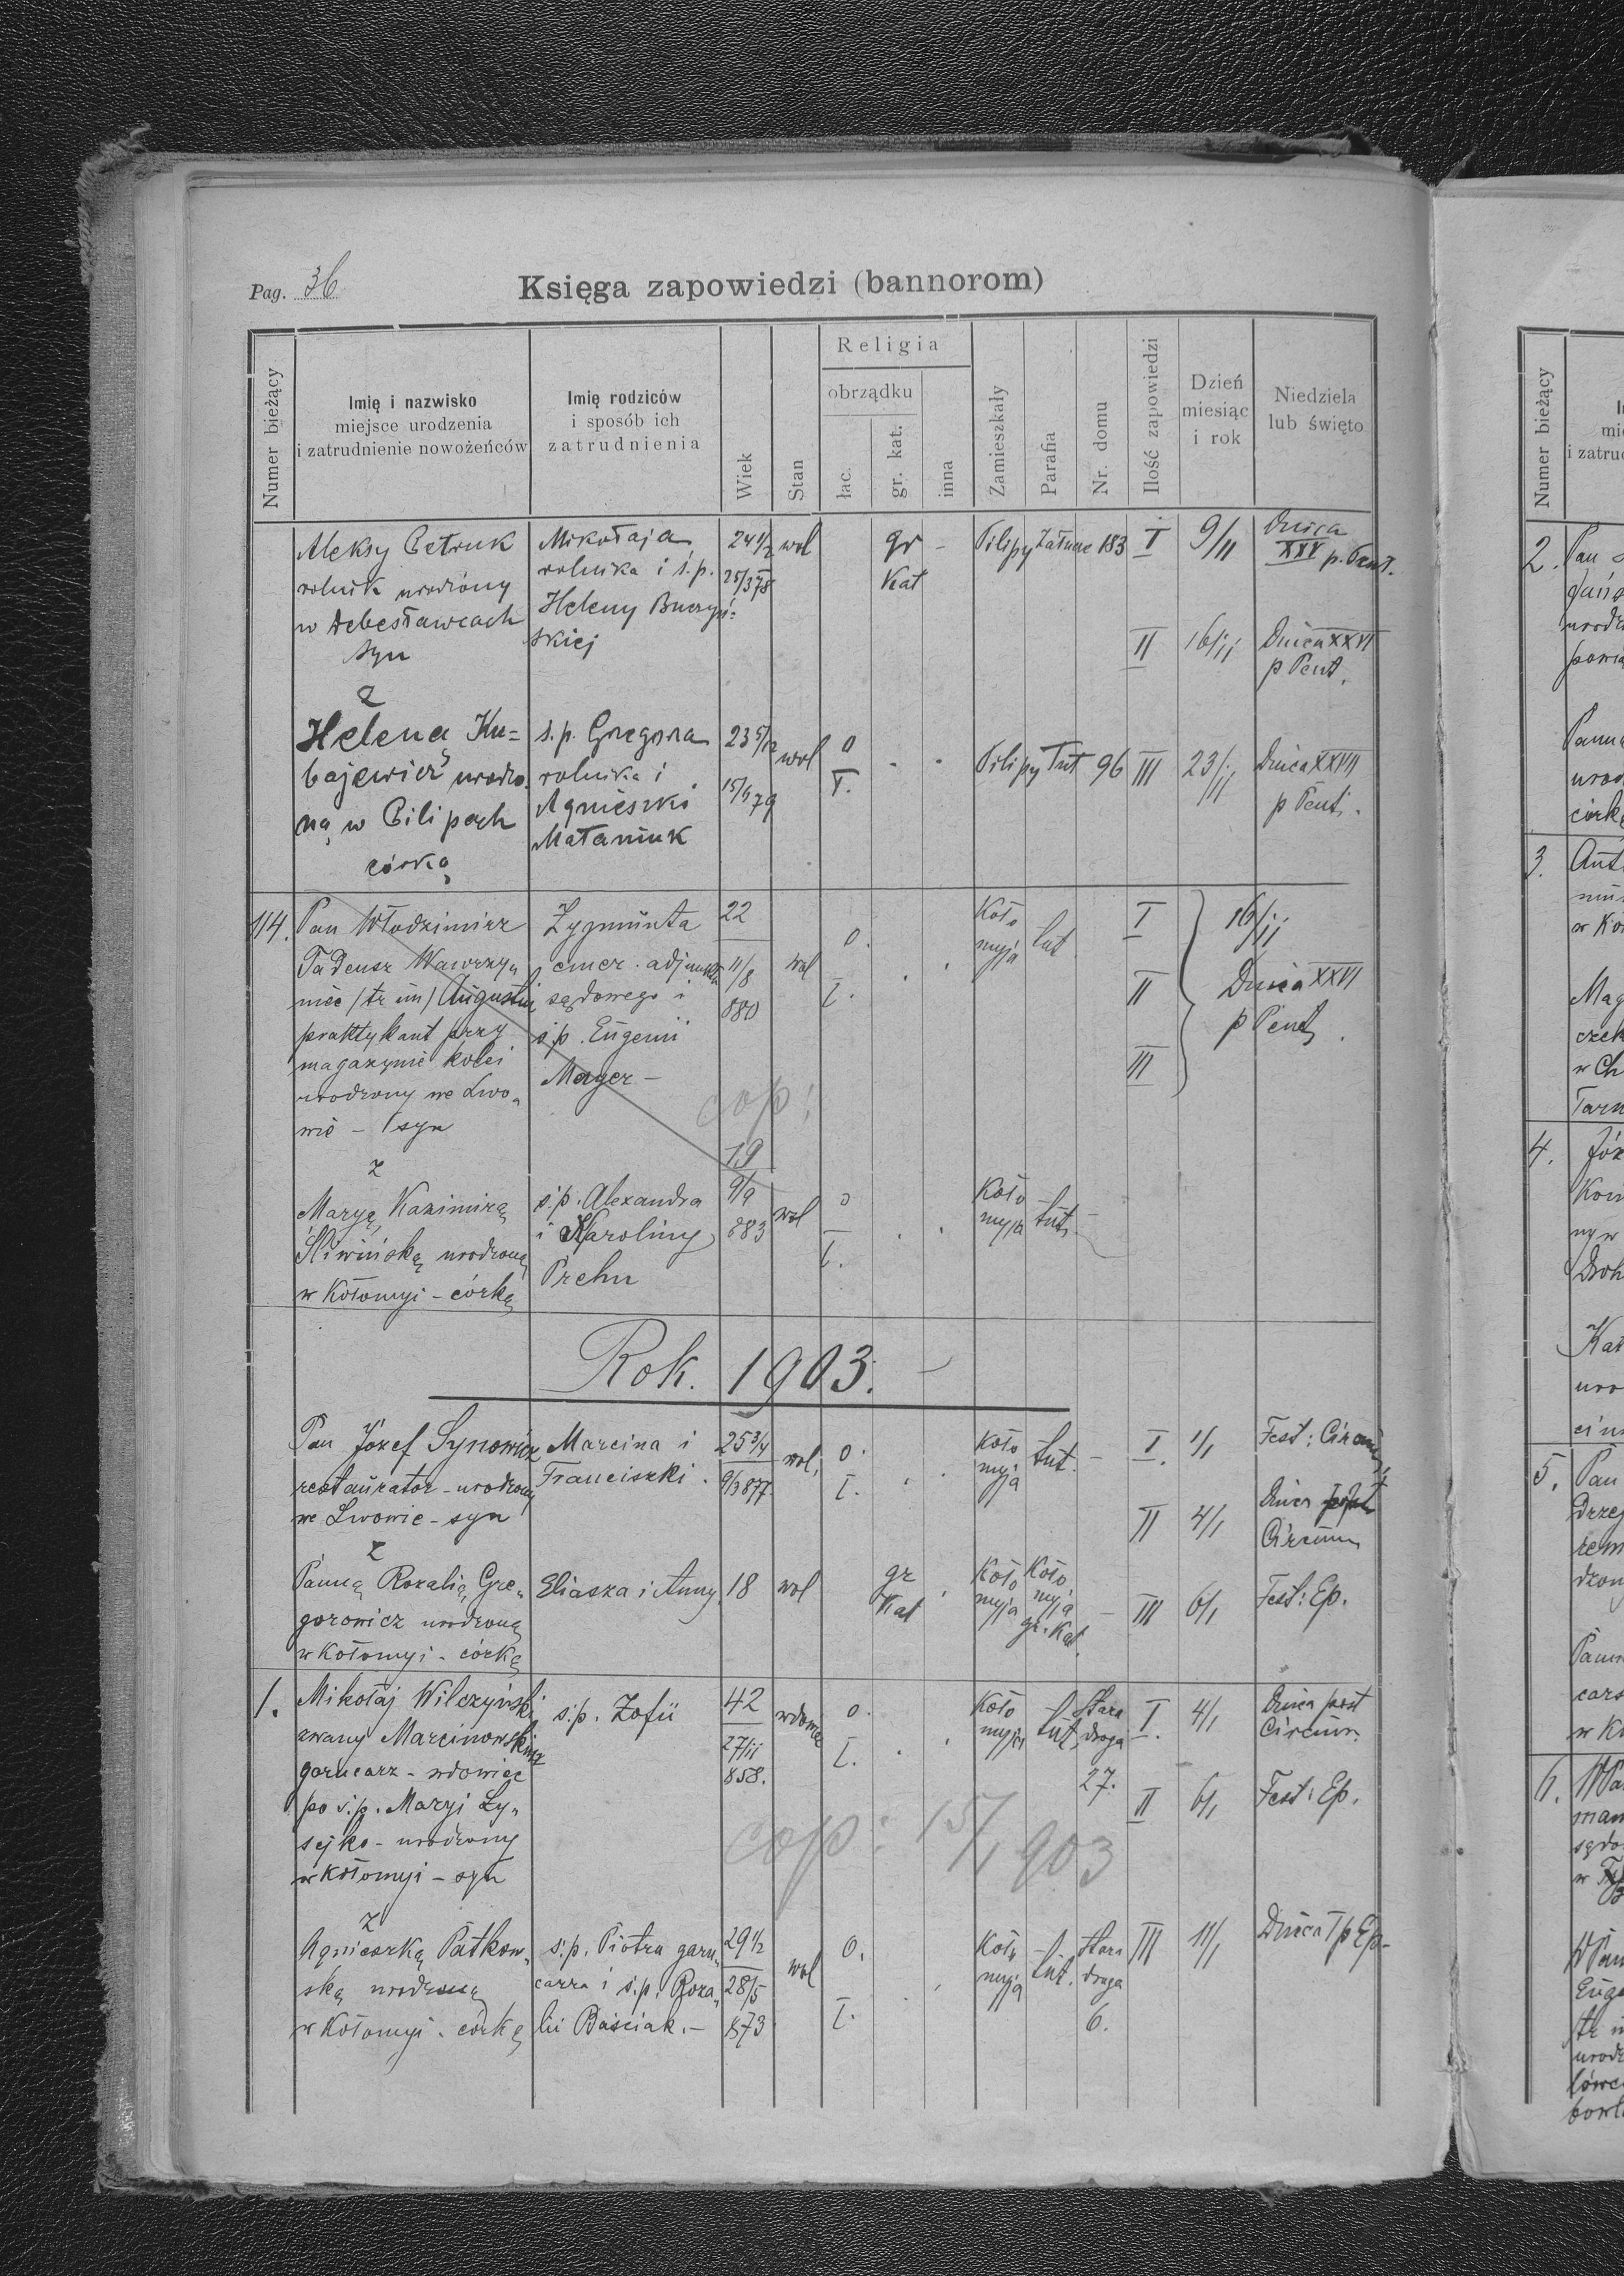 Pag. 36
Księga zapowiedzi (bannorom)
Numer bieżący
Imię i nazwisko
miejsce urodzenia
i zatrudnienie nowożeńców
Imię rodziców
i sposób ich
zatrudnienia
Wiek
Stan
Religia
obrządku
łac.
gr. kat.
inna
Zamieszkały
Parafia
Nr. domu
Ilość zapowiedzi
Dzień
miesiąc
i rok
Niedziela
lub święto
Aleksy Petruk
rolnik urodzony
w Debesławcach
syn
Mikołaja
rolnika i ś.p.
Heleny Buczyń-
skiej
24 1/2
25/3 78
wol
gr
kat
Pilipy
183
I 9/11 Dnica
XXV p. Pent.
II 16/11 Dnica XXVI
p Pent.
z
Heleną Ku=
bajewicz urodzo.
ną w Pilipach
córką
ś.p. Gregora
rolnika i
Agnieszki
Mataniuk
23 5/12
79
wol
o
ł.
Pilipy Tut 96 III 23/11 Dnica XXVII
p Pent.
114. Pan Włodzimirz
Tadeusz Wawrzy„
niec (tr im) Augustin
praktykant przy
magazynie kolei
urodzony we Lwo„
wie - syn
Zygmunta
emer. adjunkta
sądowego i
ś.p. Eugenii
Mayer -
22
11/8
880
wol
o.
ł.
Koło
myja
tut
I
II
III
16/11
Dnica XXVI
p Pent.
cop:
z
Maryą Kazimirą
Śliwińską urodzoną
w Kołomyi - córką
ś.p. Alexandra
i Karoliny
Prehn
19
9/9
883
wol
o
ł.
Koło
myja
tut
Rok. 1903.
Pan Józef Synowicz
restaurator - urodzony
we Lwowie - syn
Marcina i
Franciszki.
25 3/4
9/3 877
wol,
o.
ł.
Koło
myja
tut.
I. 1/1 Fest: Circum.
II 4/1 Dnica
Circum
z
Panną Rozalią Gre„
gorowicz urodzoną
w Kołomyi - córką
Eliasza i Anny
18
wol
gr
Kat
Koło
myja
Koło
myja
gr. Kat.
III 6/1 Fest: Ep.
1. Mikołaj Wilczyński
zwany Marcinowskim
garncarz - wdowiec
po ś.p. Maryi Ły„
sejko - urodzony
w Kołomyi - syn
ś.p. Zofii
42
27/11
858.
wdowiec
o.
ł.
Koło
myja
tut
Stara
droga
27.
I. 4/1 Dnica post
Circum.
II 6/1 Fest: Ep.
cop: 15/1 903
z
Agnieszką Patkow„
ską urodzoną
w Kołomyi - córką
ś.p. Piotra garn„
carza i ś.p. Roza„
lii Baściak. -
29 1/2
28/5
873
wol
o.
ł.
Koło
myja
tut.
Stara
droga
6.
III 11/1 Dnica I p Ep-
Numer bieżący
2. Pan
3.
w Ko
4.
5. Pan
6.